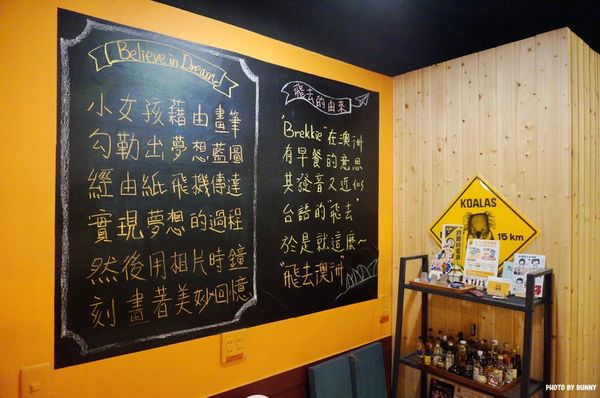 Believe in Dream
小女孩藉由畫筆
勾勒出夢想藍圖
經由紙飛機傳達
實現夢想的過程
然後用相片時鐘
刻畫著美妙回憶
飛去的由來
"Brekkie"在澳洲
有早餐的意思
其發音又近似
台語的"飛去"
於是就這麼~
"飛去澳洲"
KOALAS
15 km
PHOTO BY BUNNY